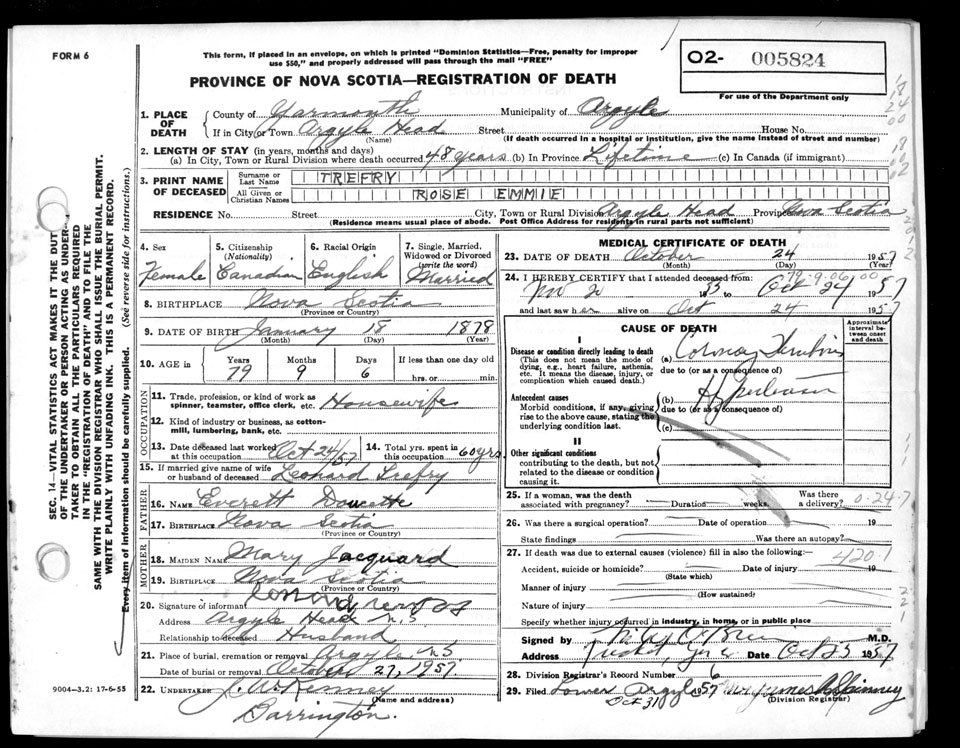 FORM 6
This form, if placed in an envelope, on which is printed "Dominion Statistics—Free, penalty for improper
use $50," and properly addressed will pass through the mail "FREE"
PROVINCE OF NOVA SCOTIA—REGISTRATION OF DEATH
O2- 005824
For use of the Department only
1. PLACE OF DEATH
County of Yarmouth Municipality of Argyle
If in City or Town Argyle Head Street House No.
(Name) (If death occurred in a hospital or institution, give the name instead of street and number)
2. LENGTH OF STAY (in years, months and days)
(a) In City, Town or Rural Division where death occurred 48 years (b) In Province Lifetime (c) In Canada (if immigrant)
3. PRINT NAME OF DECEASED
Surname or Last Name TREFRY
All Given or Christian Names ROSE EMMIE
RESIDENCE No. Street City, Town or Rural Division Argyle Head Province Nova Scotia
(Residence means usual place of abode. Post Office Address for residents in rural parts not sufficient)
4. Sex
Female
5. Citizenship
(Nationality)
Canadian
6. Racial Origin
English
7. Single, Married,
Widowed or Divorced
(write the word)
Married
8. BIRTHPLACE Nova Scotia
(Province or Country)
9. DATE OF BIRTH January 18 1878
(Month) (Day) (Year)
10. AGE in Years Months Days If less than one day old
79 9 6 hrs. or min.
OCCUPATION
11. Trade, profession, or kind of work as
spinner, teamster, office clerk, etc. Housewife
12. Kind of industry or business, as cotton-
mill, lumbering, bank, etc.
13. Date deceased last worked
at this occupation Oct 24/57
14. Total yrs. spent in
this occupation 60 yrs
15. If married give name of wife
or husband of deceased Leonard Trefry
FATHER
16. Name Everett Doucette
17. Birthplace Nova Scotia
(Province or Country)
MOTHER
18. Maiden Name Mary Jacquard
19. Birthplace Nova Scotia
(Province or Country)
20. Signature of informant
Address Argyle Head N.S
Relationship to deceased Husband
21. Place of burial, cremation or removal Argyle N S
Date of burial or removal October 27, 1957
22. UNDERTAKER J. McKinney
(Name and address)
Barrington.
9004—3.2: 17-6-55
MEDICAL CERTIFICATE OF DEATH
23. DATE OF DEATH October 24 1957
(Month) (Day) (Year)
79-9-06
24. I HEREBY CERTIFY that I attended deceased from:
to Oct 24 1957
and last saw her alive on Oct 24 1957
CAUSE OF DEATH
Approximate interval between onset and death
I
Disease or condition directly leading to death
(This does not mean the mode of
dying, e.g., heart failure, asthenia,
etc. It means the disease, injury, or
complication which caused death.)
(a) Coronary Thrombosis
due to (or as a consequence of)
Antecedent causes
Morbid conditions, if any, giving
rise to the above cause, stating the
underlying condition last.
(b) Hypertension
due to (or as a consequence of)
(c)
II
Other significant conditions
contributing to the death, but not
related to the disease or condition
causing it.
25. If a woman, was the death
associated with pregnancy? Duration weeks. Was there
a delivery?
26. Was there a surgical operation? Date of operation 19
State findings Was there an autopsy?
27. If death was due to external causes (violence) fill in also the following:—
Accident, suicide or homicide? Date of injury 19
(State which)
420.1
Manner of injury
(How sustained)
Nature of injury
Specify whether injury occurred in industry, in home, or in public place
Signed by M.D.
Address Date Oct 25 1957
28. Division Registrar's Record Number 6
29. Filed Lower Argyle 57
Oct 31
(Division Registrar)
SEC. 14—VITAL STATISTICS ACT MAKES IT THE DUTY
OF THE UNDERTAKER OR PERSON ACTING AS UNDER-
TAKER TO OBTAIN ALL THE PARTICULARS REQUIRED
IN THE "REGISTRATION OF DEATH" AND TO FILE THE
SAME WITH THE DIVISION REGISTRAR WHO SHALL ISSUE THE BURIAL PERMIT.
WRITE PLAINLY WITH UNFADING INK. THIS IS A PERMANENT RECORD.
Every item of information should be carefully supplied. (See reverse side for instructions.)